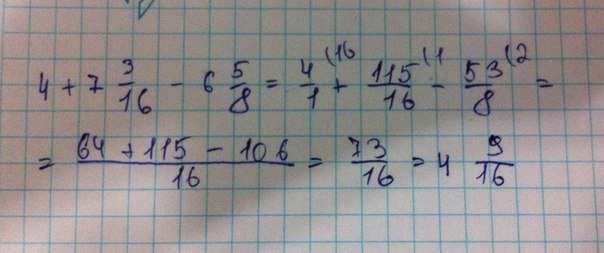 4 + 7 3/16 - 6 5/8 = 4/1 (16 + 115/16 (1 - 53/8 (2 =
= 64 + 115 - 106/16 = 73/16 = 4 9/16